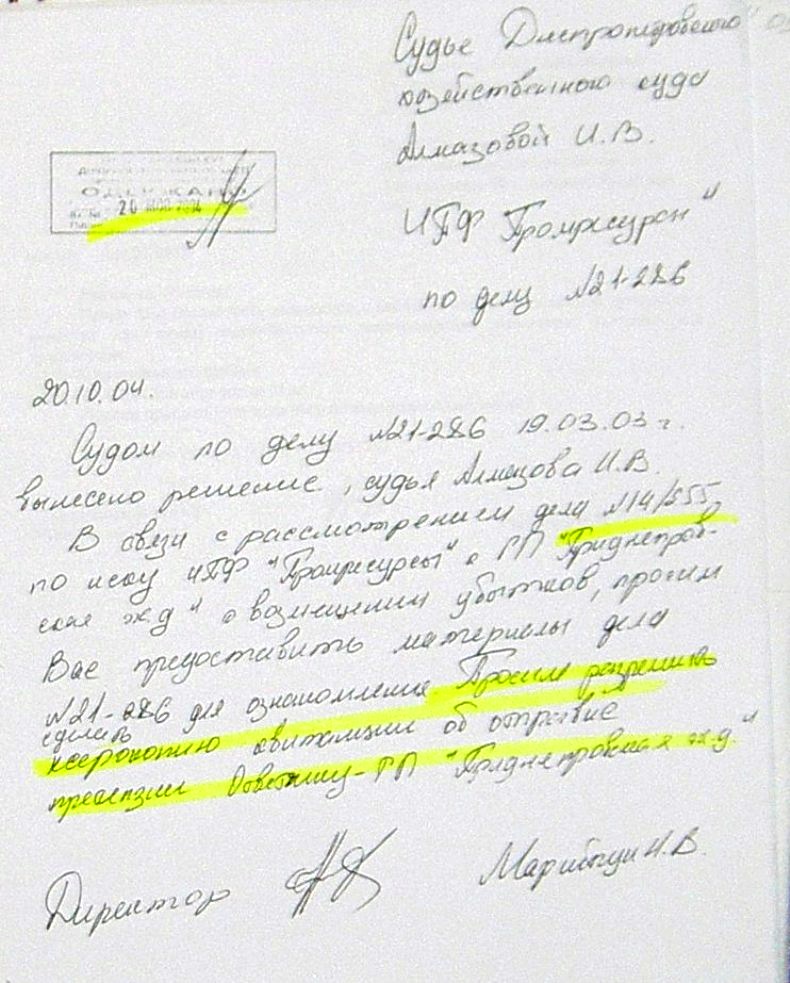 Судье Днепропетровского
хозяйственного суда
Алмазовой И.В.
ОДЕРЖАНО
20
ИПФ "Промресурсы"
по делу №21-286
20.10.04.
Судом по делу №21-286 19.03.03 г.
вынесено решение, судья Алмазова И.В.
В связи с рассмотрением дела №14/555
по иску ИПФ "Промресурсы" к ГП "Приднепров-
ская ж.д" о возмещении убытков, просим
Вас предоставить материалы дела
№21-286 для ознакомления. Просим разрешить
сделать
ксерокопию квитанции об отправке
претензии Ответчику-ГП "Приднепровская ж.д."
Директор